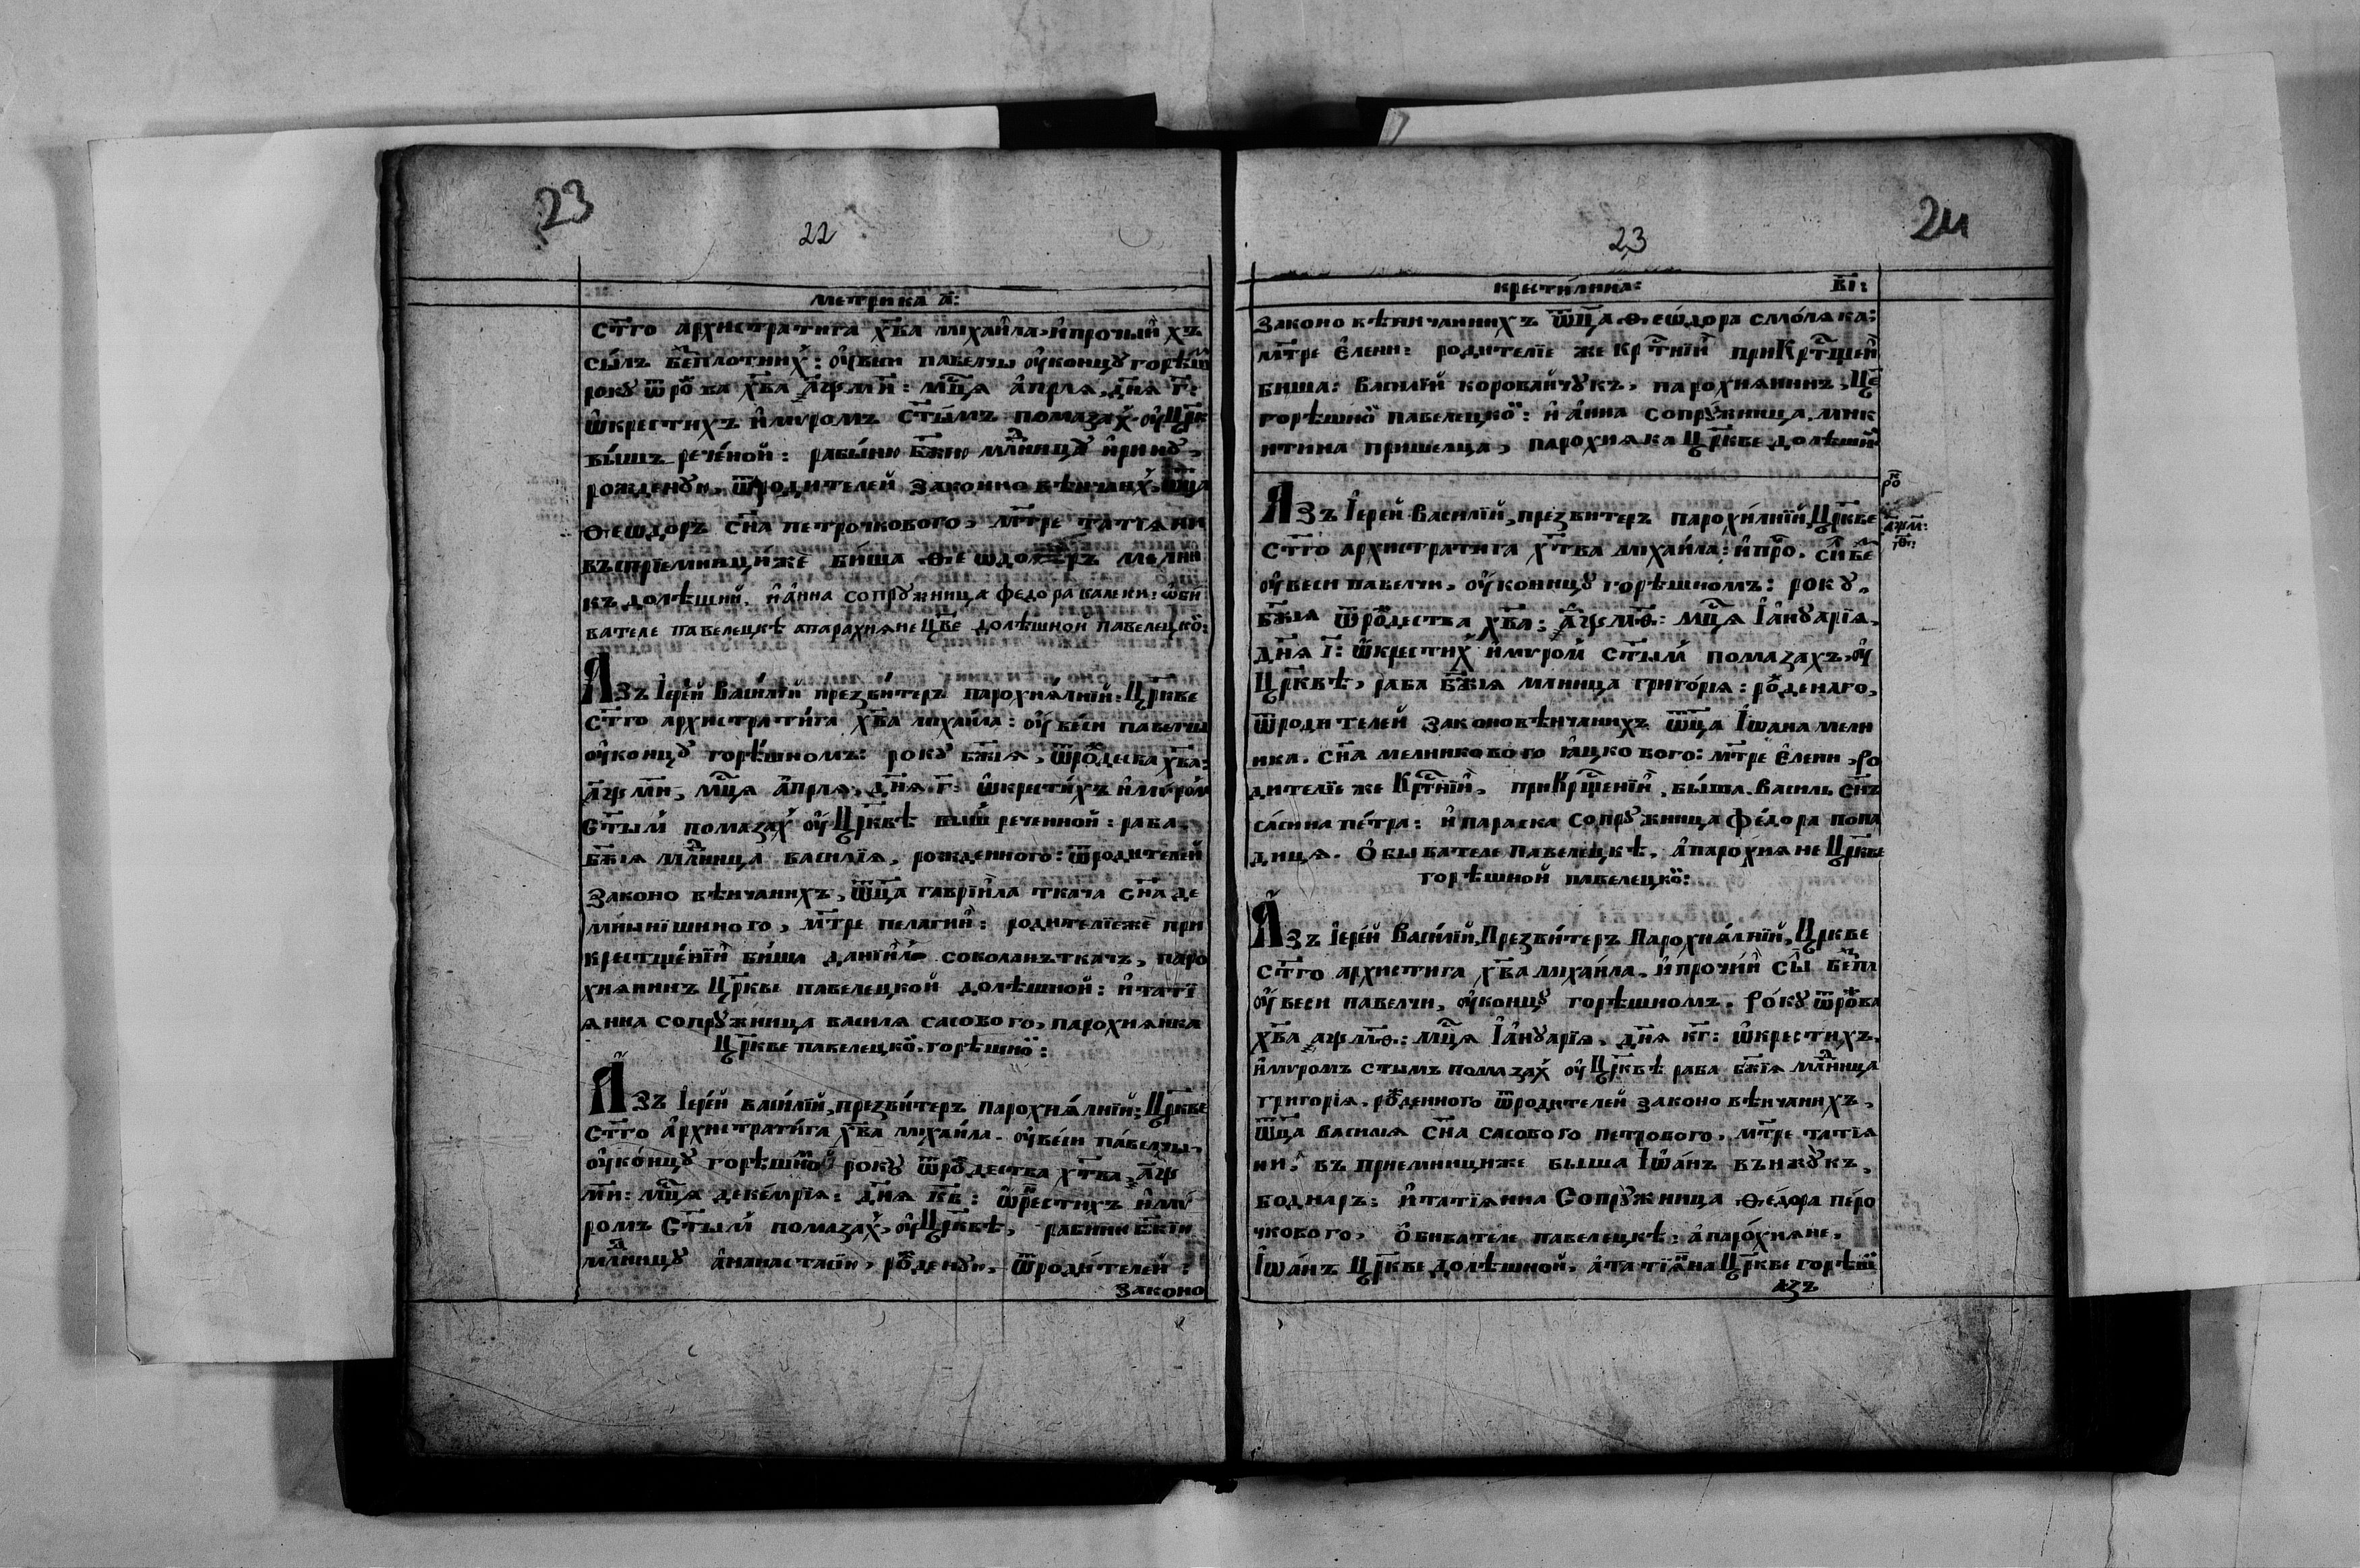 23
22
метрика а҃:
ст҃го архистратига хв҃а михаила, и прочыи хъ
сы́лъ бе҃плотних: оу́ вси павелчы оу́ концу горѣш
року ѿро ва хв҃а ҂аѱми: мц҃я априля, дн҃я г҃:
ѡкрестихъ и мѵромъ ст҃ы́мъ помазах оу́ Црк
вы́шъ рече́ной: рабы́ню бж҃ію млницу ирину,
рожденую, ѿродителей законно вѣнчаих, ѿца
Ѳеѡдоръ сн҃а петрочкового, мт҃ре татіяни
въспріемницижѐ би́ша
къ долѣшний. и а́нна сопружница федора
вателе павелецкѣ апарахияне Цр҃ве долѣшной павелецкӧ:
Азъ Іерей Васи́лій презви́теръ парохия́лній: Цр҃кве
ст҃го архистрати́га хв҃а михаи́ла: оу́ ве́си павелчы
оу́ концу горѣ́шномъ: року бж҃ія, ѿрождесва хв҃а:
҂аѱ ми, мц҃я априля, дн҃я г҃: ѡкрести́хъ и мѵром
Ст҃ым помазах оу́ Цр҃квѣ выш реченной: раба
бж҃ія млница василія, рожденного: ѿродителей
Законо вѣнчанихъ, ѿца гаврии́ла ткача сн҃а де
миынишиного, мт҃ре пелагии: родителіежѐ при
крестще́ніи би́ша данїи́ла соколанъ ткачъ, паро
хиянинъ Цр҃кве павелецкой долѣшной: и татї
янна сопружница василя сасового, парохиянка
Цр҃кве павелецкӧ. горѣшнӧ:
Азъ Іере́й васи́лій, презви́теръ парохия́лній: Цр҃кве
Ст҃го а́рхистрати́га хв҃а михаи́ла. оу́ ве́си па́велчы.
оу́ ко́нцу горѣшно року ѿрождества хт҃ва, ҂аѱ
ми: мц҃я деке́мрія: дн҃я к҃в: ѡкрестихъ и мѵ́
ромъ Ст҃ым помазах, оу́ Цр҃квѣ, рабини бж҃їи
млницу а́нанастасїи, рожденую, ѿроди́телей:
Законо
24
23
крести́лника:
в҃і:
Законо вѣнчанихъ ѿца Ѳеѡ́дора смо́ляка:
мт҃ре е́лени: роди́теліе же кр҃тній при Кр҃тщей
биша: василій коровайчукъ, парохиянинъ, Це
горѣшнӧ павелецкӧ: и а́нна сопру́жница, мик
итина пришелца, парохиянка Цр҃кве долѣшни
ро
҂аѱм:
Ѳ:
Азъ Іерей василій, презвитеръ парохи́лній, Цр҃кве
ст҃го архистратига хт҃ва михаи́ла: и про. си бе
оу́ веси павелчи, оу́ коницу горѣшномъ: року,
бж҃ія ѿрождества хв҃а: ҂аѱмѳ: мц҃я Іануарія,
дн҃я і҃: ѡкрестих и мѵром ст҃ым помазахъ, оу́
Цр҃квѣ, раба бж҃ія мл҃ница григо́рія: рожденаго,
ѿродителей законо вѣнчанихъ ѿца Іѡана мелн
ика. сн҃а мелникового і́ацкового: мт҃ре е́лени, ро
дителіе же Кр҃тній, при Кр҃щеній, бы́ша. василь сн҃ъ
са́сина пе́тра: и параска сопружница фе́дора попа
дидя. О́бывателе павеле́цкѣ, а́парохияне Цр҃кве
горѣшной павелецкӧ:
Азъ Іере́й Васи́лій, Презви́теръ Парохия́лній, Цр҃кве
ст҃го архистига хв҃а михаи́ла, и прочи́и сы бе́пл
оу́ веси павелчи, оу́ концу горѣшномъ, ро́ку ѿро҃ва
хв҃а ҂аѱмѳ: мц҃я Іануарія, дн҃я к҃г: ѡкрестихъ,
и мѵромъ стымъ помазах оу́ Цр҃квѣ раба бж҃ія млница
григорія. рожденного ѿродителей законо вѣнчанихъ,
ѿца василія сн҃а сасового петрового, мт҃ре татія
ни: въ приемницихже быша Іѡа́нъ вънжукъ,
боднаръ: и татія́нна Сопру́жница Ѳе́дора пе́ро
чкового, О́бивателе павелецкѣ, а́паро́хияне,
Іѡа́нъ Цр҃кве долѣшной, а́татія́на Цр҃кве горѣш
азъ